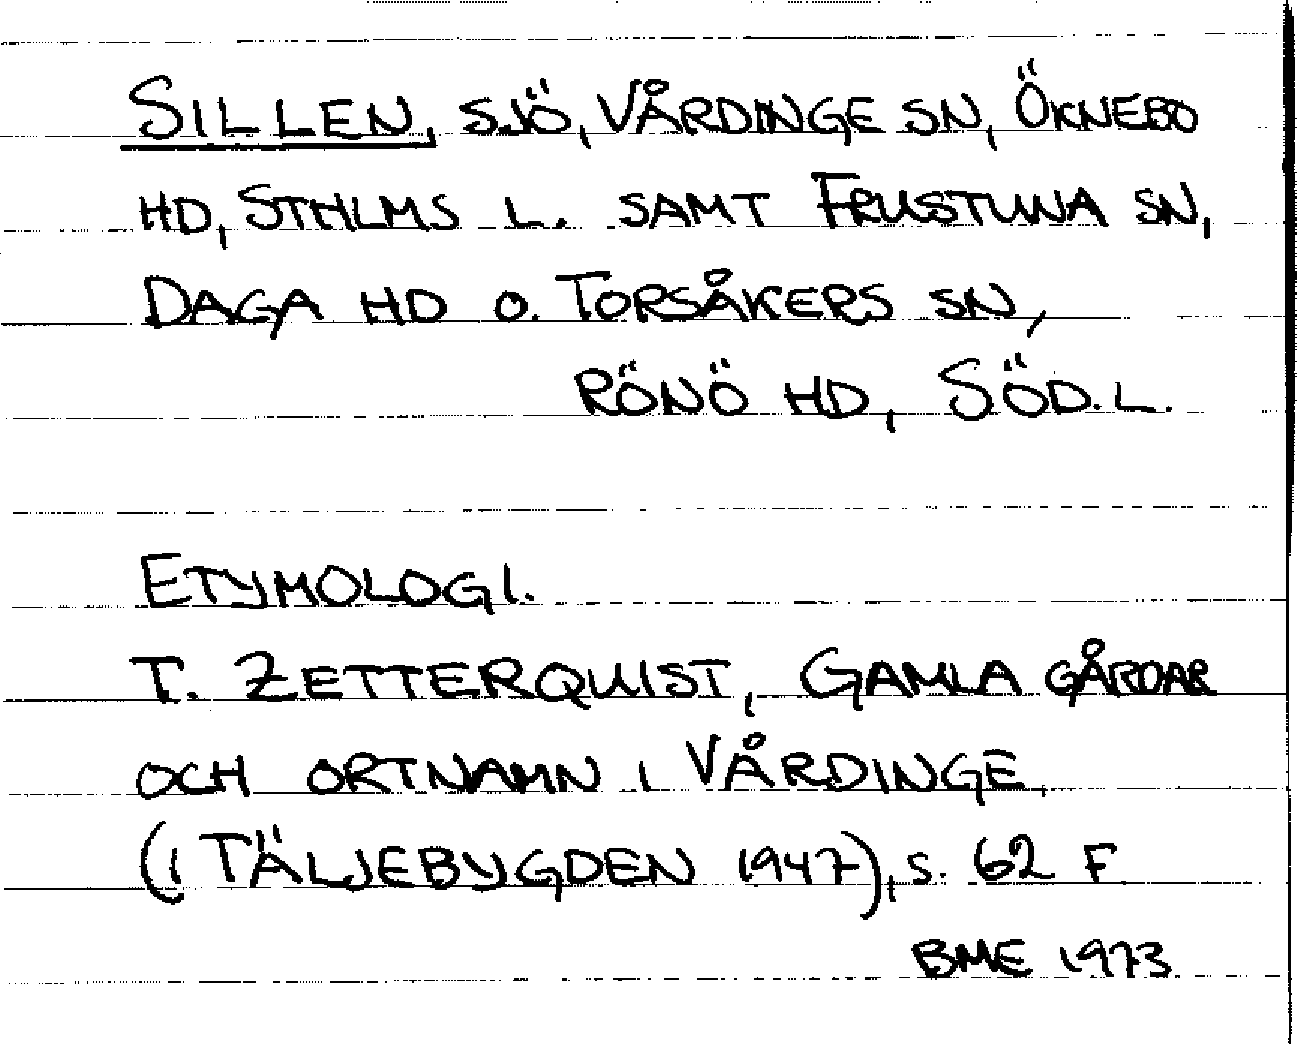 SILLEN, SJÖ, VÅRDINGE SN, ÖKNEBO
HD, STHLMS L. SAMT FRUSTUNA SN,
DAGA HD O. TORSÅKERS SN,
RÖNÖ HD, SÖD. L.
ETYMOLOGI.
T. ZETTERQUIST, GAMLA GÅRDAR
OCH ORTNAMN I VÅRDINGE,
(I TÄLJEBYGDEN 1947), S. 62 F
BME 1973